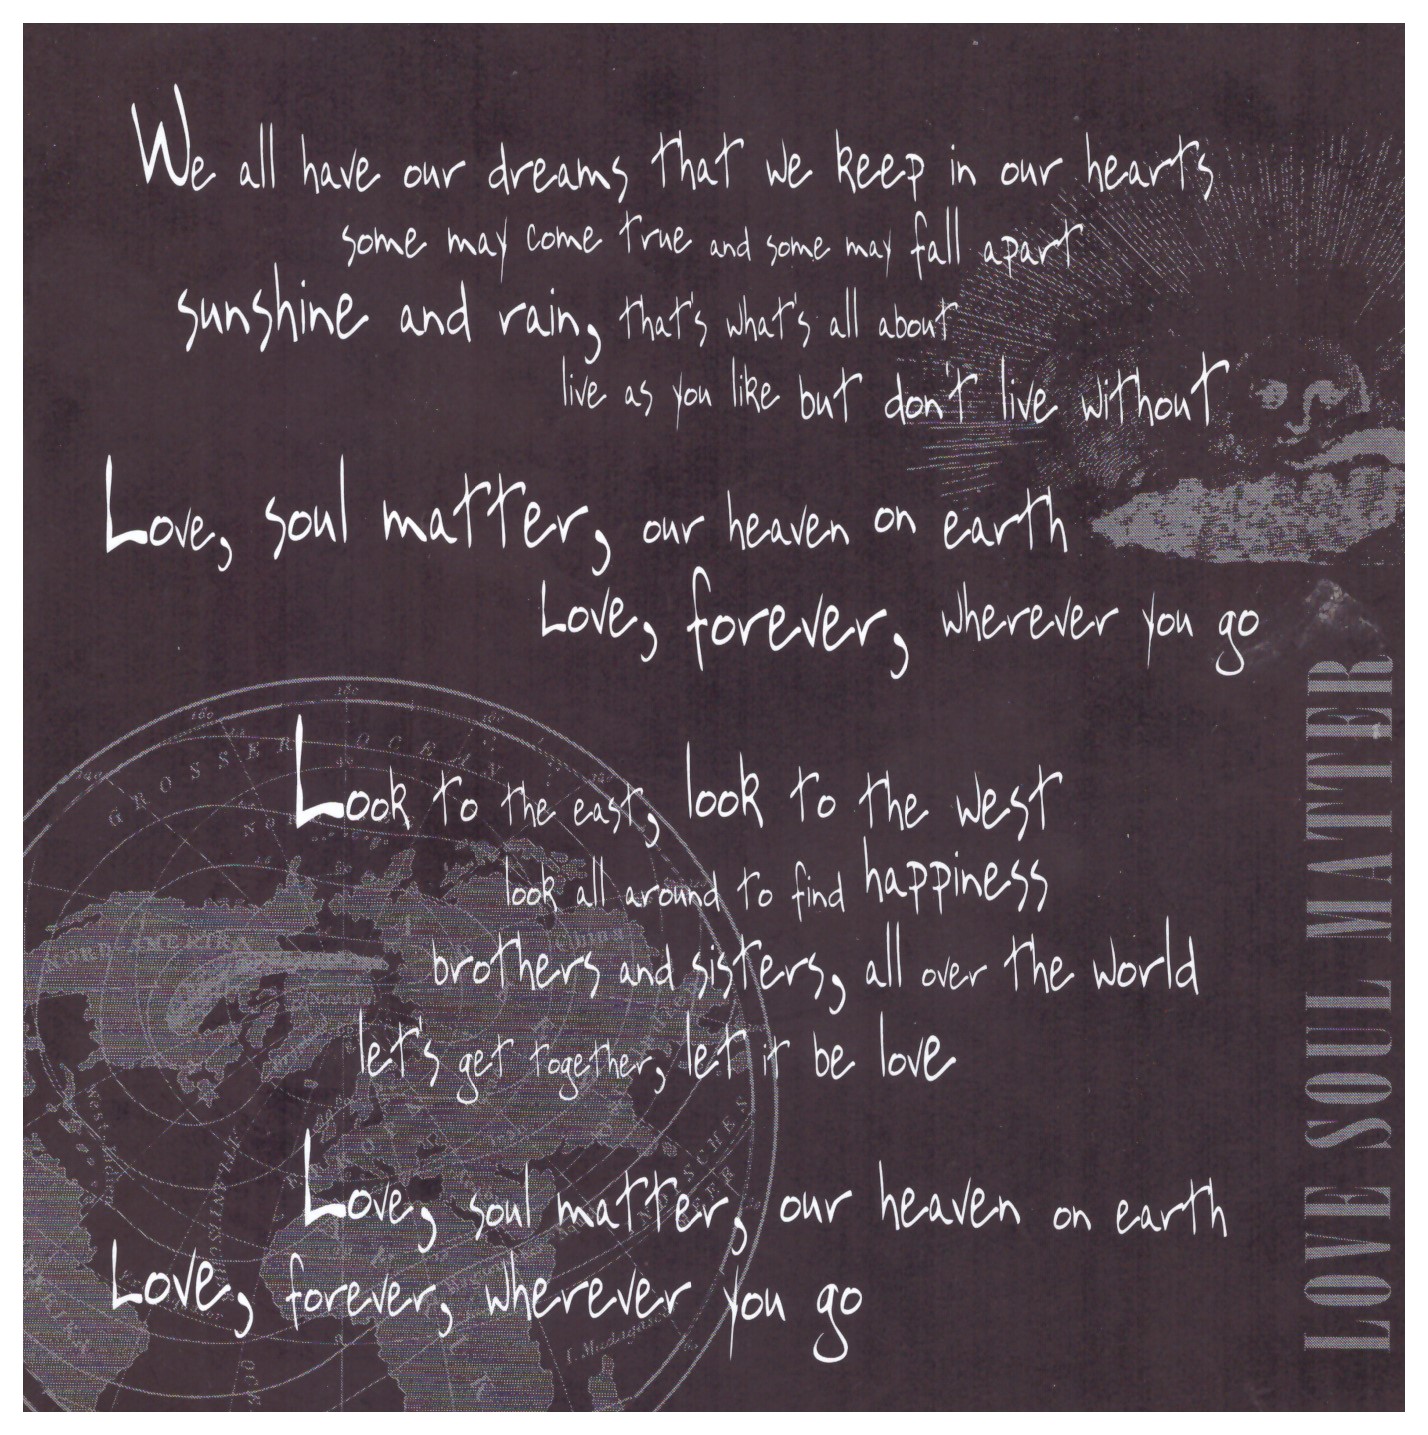 We all have our dreams that we keep in our hearts
some may come true and some may fall apart
sunshine and rain, that's what's all about
live as you like but don't live without
Love, soul matter, our heaven on earth
Love, forever, wherever you go
Look to the east, look to the west
look all around to find happiness
brothers and sisters, all over the world
let's get together, let it be love
Love, soul matter, our heaven on earth
Love, forever, wherever you go
LOVE SOUL MATTER
GROSSER OCEAN
180
160
NORD AMERIKA
China